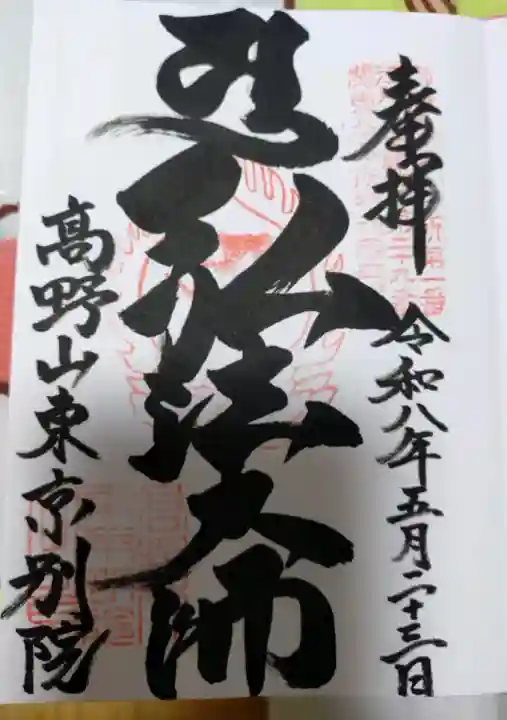 奉拝
令和八年五月二十三日
弘法大師
高野山東京別院